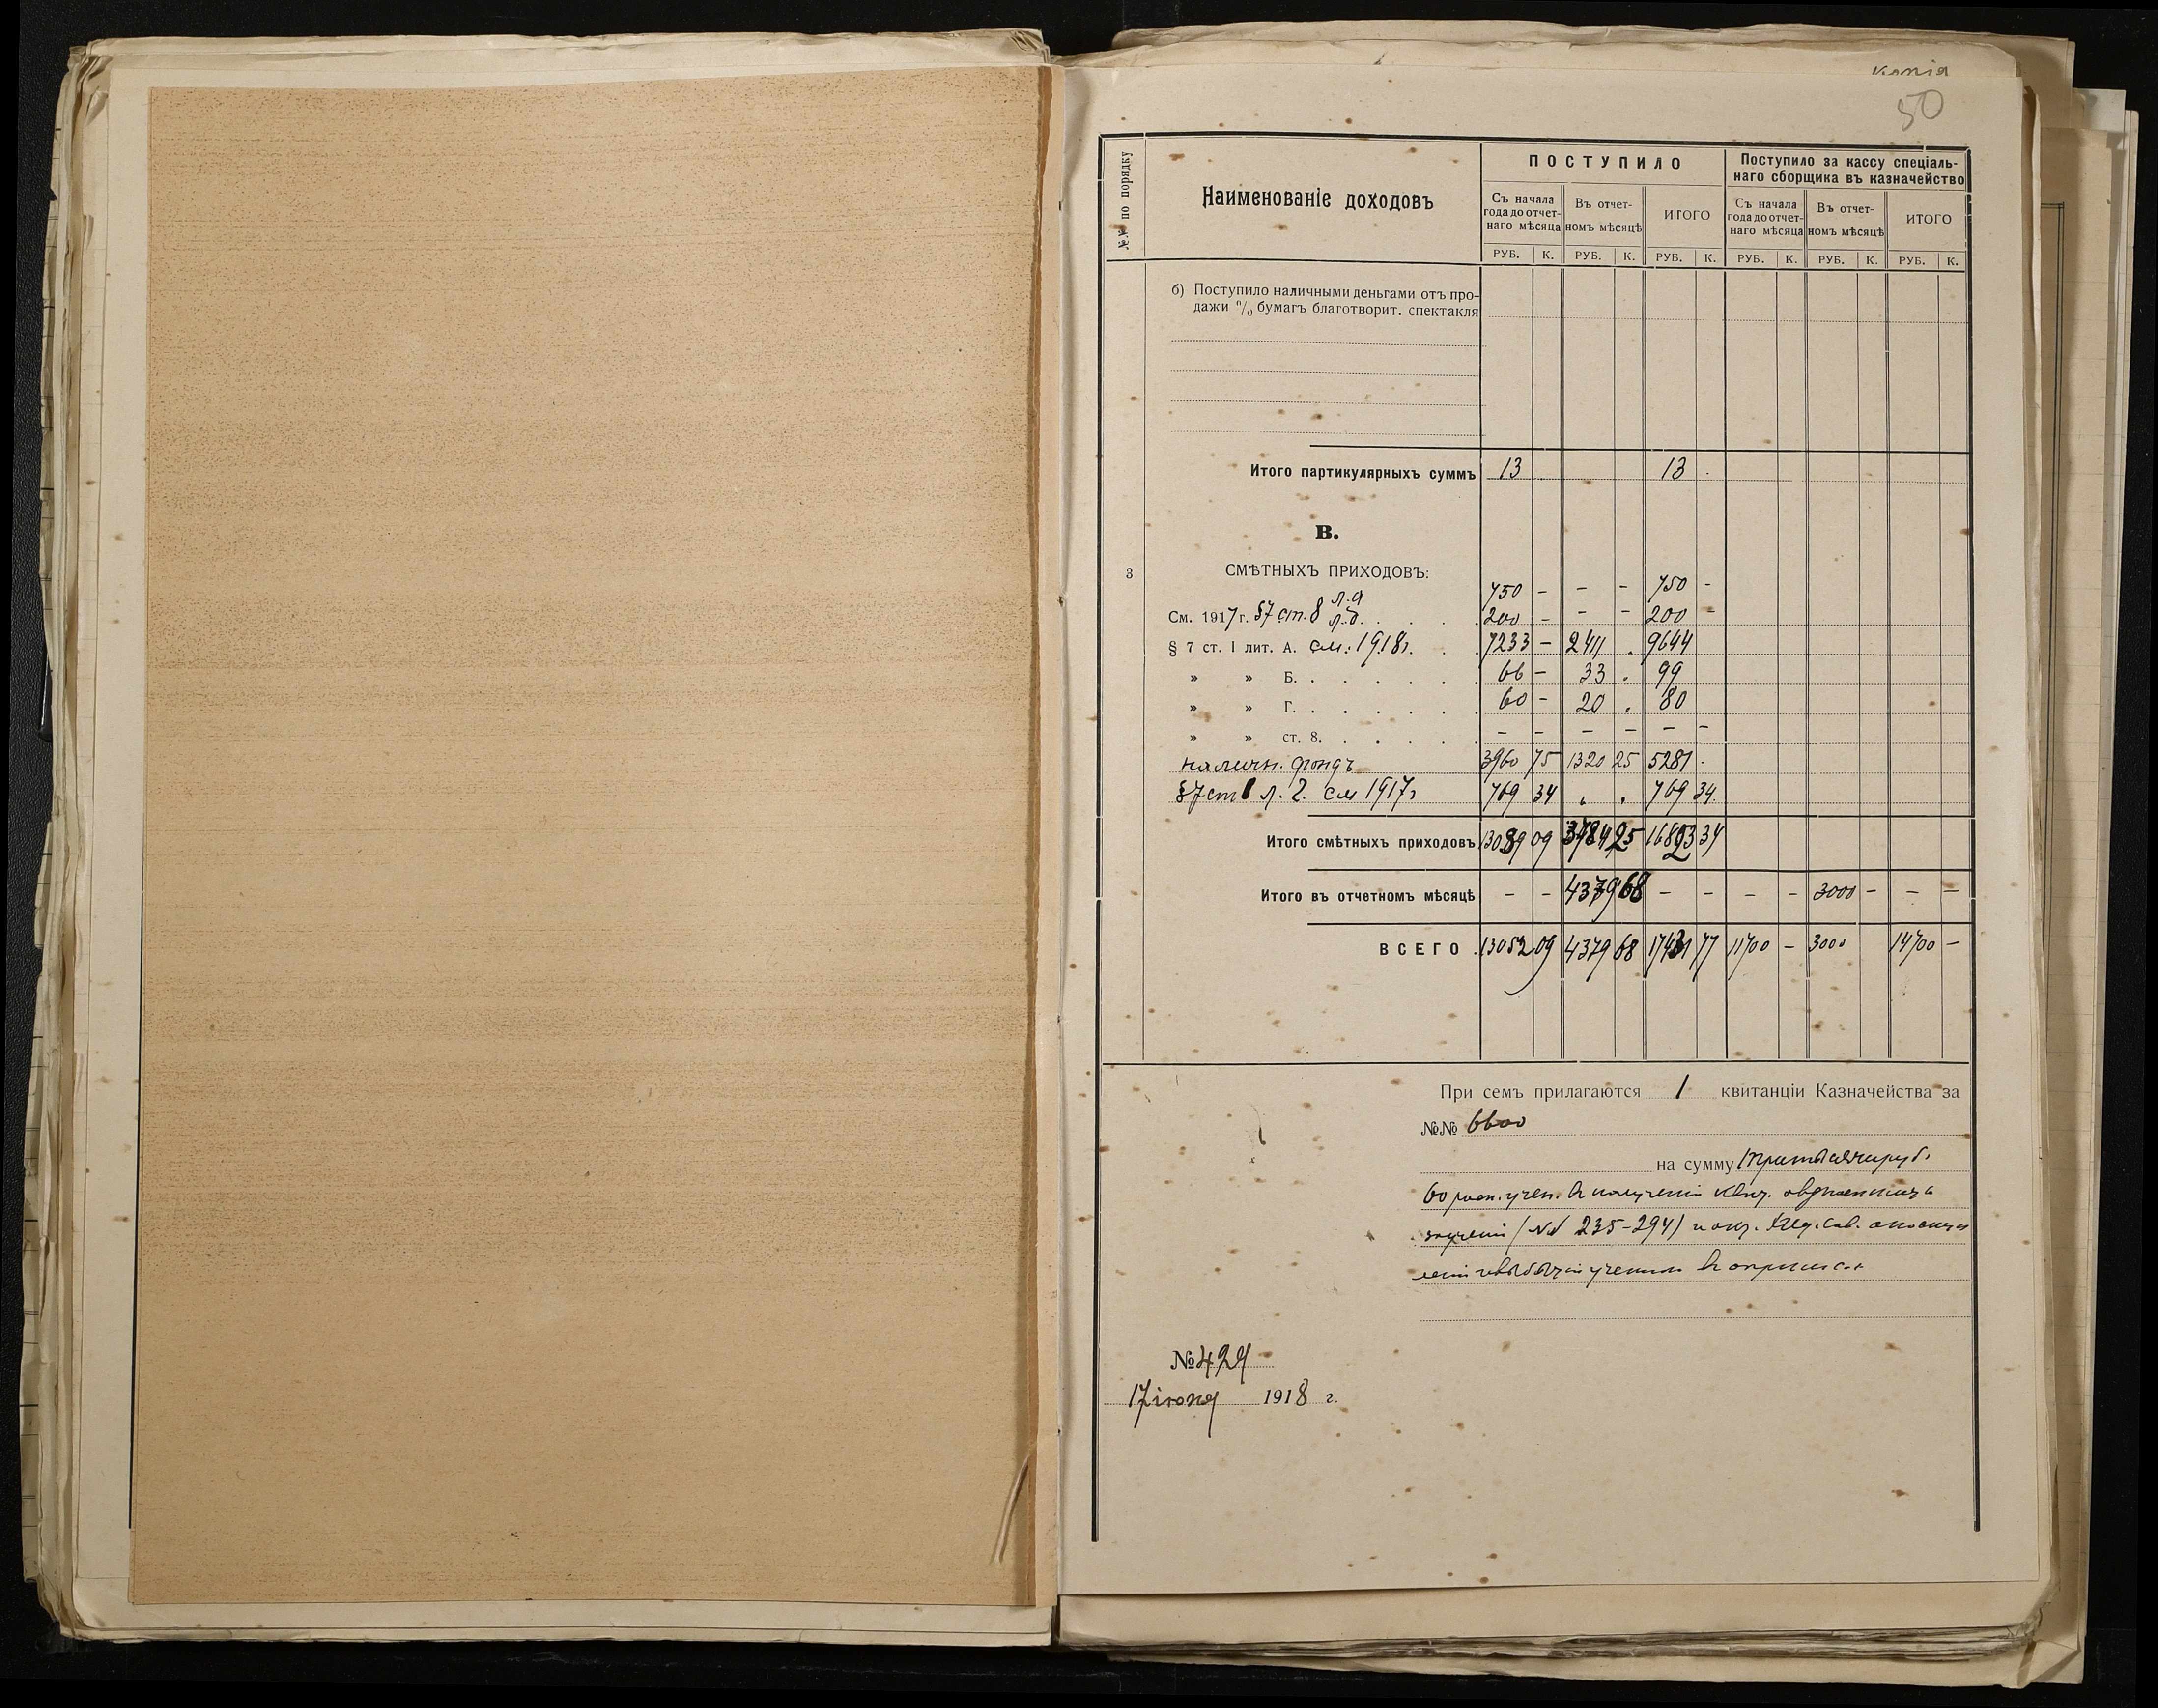 копія
50
№№ по порядку
Наименованіе доходовъ
ПОСТУПИЛО
Поступило за кассу спеціаль-
наго сборщика въ казначейство
Съ начала года до отчет- наго мѣсяца
Въ отчет- номъ мѣсяцѣ
ИТОГО
Съ начала года до отчет- наго мѣсяца
Въ отчет- номъ мѣсяцѣ
ИТОГО
РУБ. К. РУБ. К. РУБ. К. РУБ. К. РУБ. К. РУБ. К.
б) Поступило наличными деньгами отъ про-
дажи % бумагъ благотворит. спектакля
Итого партикулярныхъ суммъ 13 13 .
В.
3 СМѢТНЫХЪ ПРИХОДОВЪ:
л. а 750 - - - 750 -
См. 1917 г. §7 ст. 8 л. б. 200 - - - 200 -
§ 7 ст. I лит. А. см. 1918 г. 7233 - 2411 . 9644
» » Б. 66 - 33 . 99
» » Г. 60 - 20 . 80
» » ст. 8. - - - - - -
наличн. фондъ 3960 75 1320 25 5281 .
§7 ст 1 л. г. см 1917 г 769 34 . . 769 34.
Итого смѣтныхъ приходовъ 13039 09 3784 25 16823 34
Итого въ отчетномъ мѣсяцѣ - - 4379 68 - - - - 3000 - - -
ВСЕГО 13052 09 4379 68 17431 77 11700 - 3000 14700 -
При семъ прилагаются 1 квитанціи Казначейства за
№№ 6600
на сумму три тысячи руб.
60 учен. въ получении квит.
(№ 235-294) Пед. Сов.
№ 424
17 іюня 1918 г.